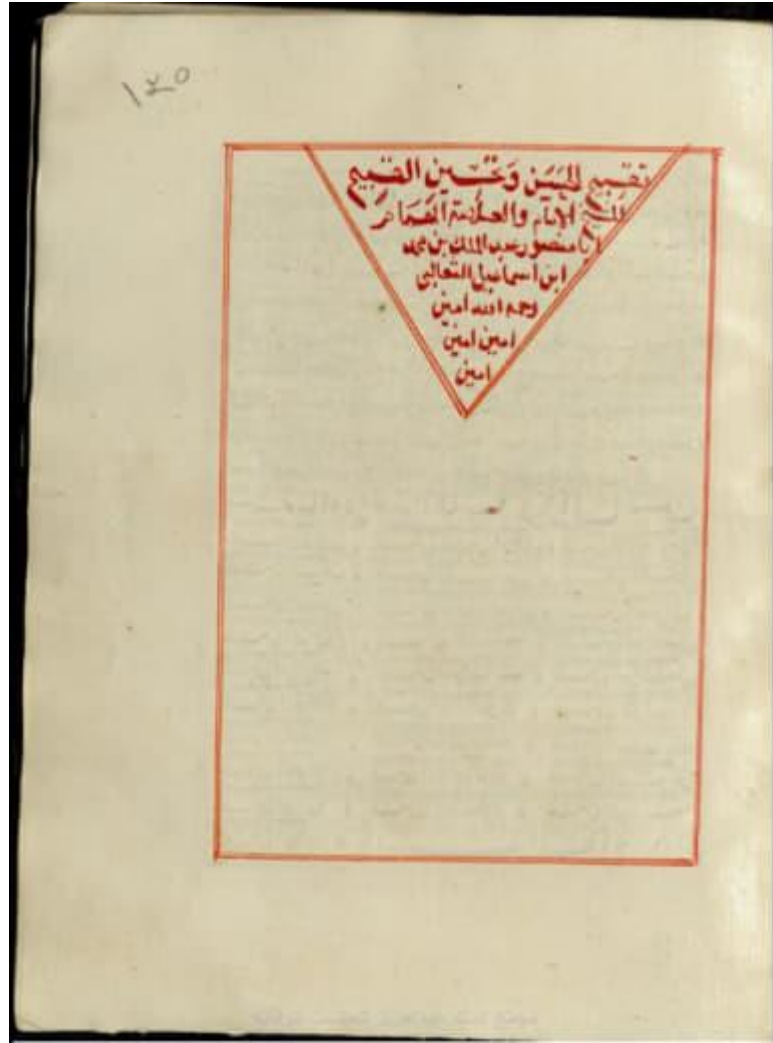 ١٢٥
تقبيح الحسن وتحسين القبيح
للشيخ الإمام والعلامة الهمام
أبا منصور عبد الملك بن محمد
ابن اسماعيل الثعالبي
رحمه الله امين
امين امين
امين